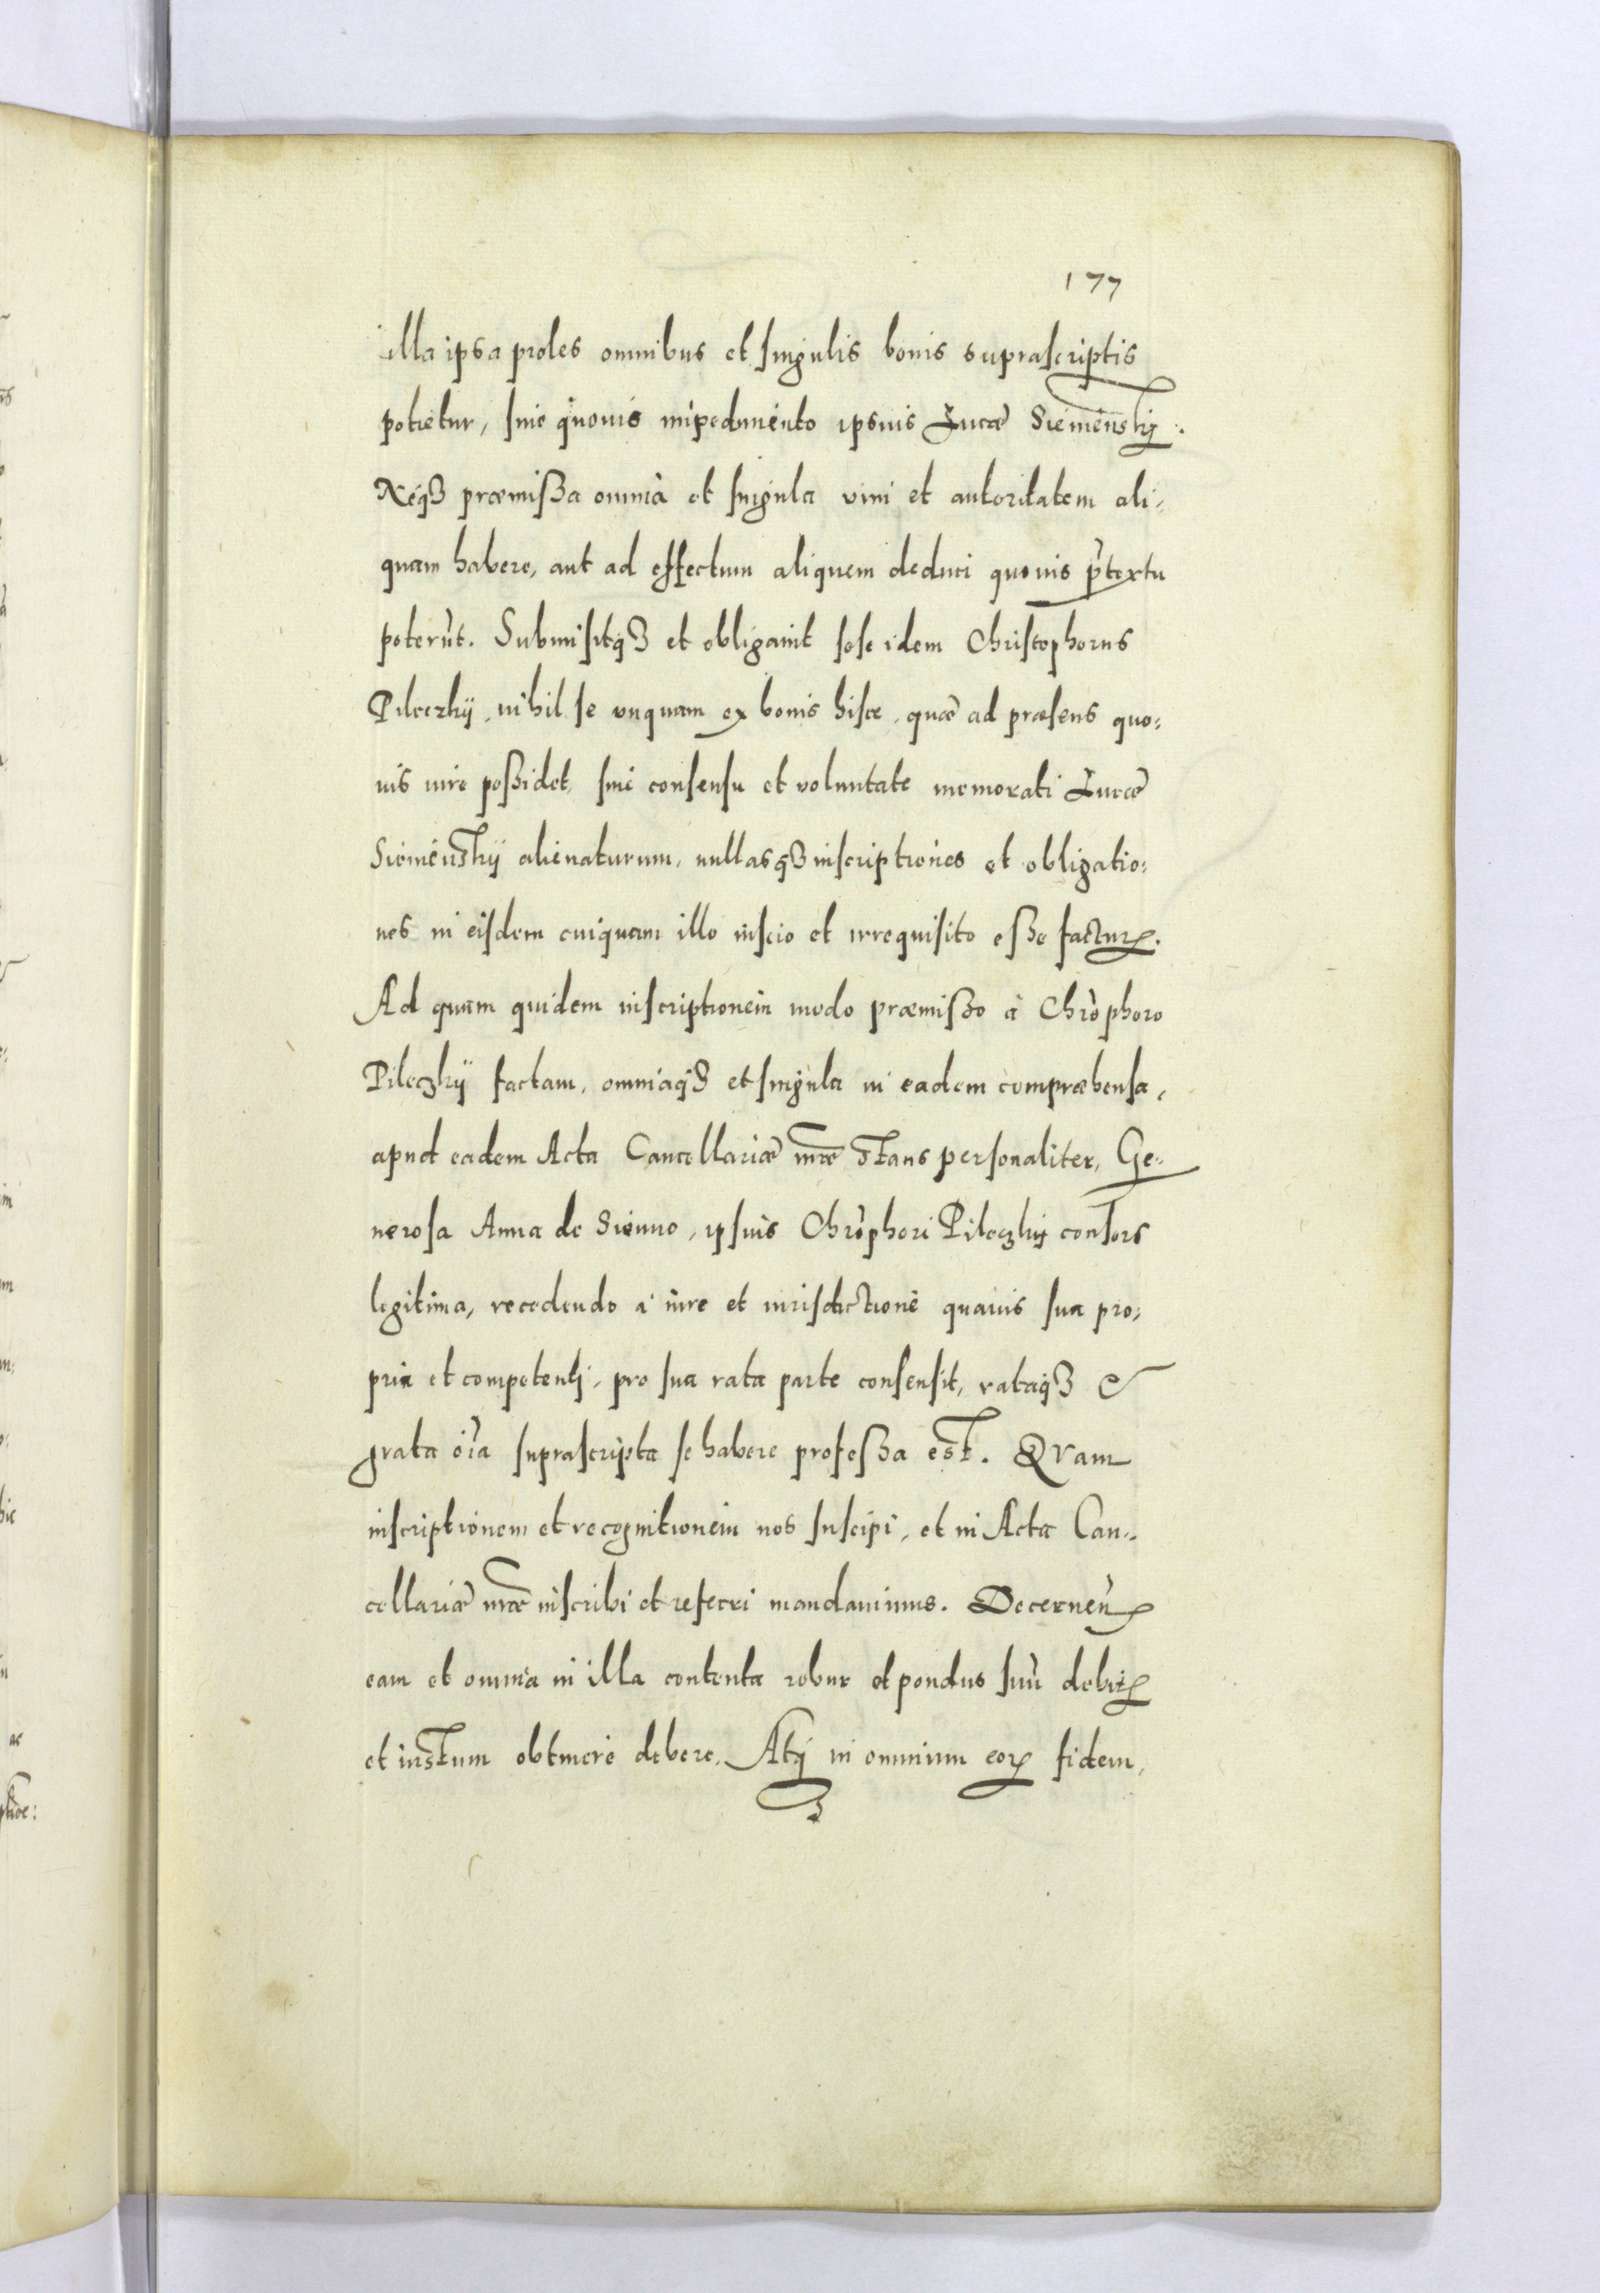 177
illa ipsa proles omnibus et singulis bonis suprascriptis
potietur, sine quouis impedimento ipsius Lucæ Siemienskij.
Neq́ꝫ præmissa omnia et singula vim et autoritatem ali-
quam habere, aut ad effectum aliquem deduci quouis p̀textu
poterùt. Submisitq́ꝫ et obligauit sese idem Christophorus
Pileczkij, nihil se vnquam ex bonis hisce, quæ ad præsens quo-
uis iure possidet, sine consensu et voluntate memorati Lucæ
Siemieńskij alienaturum, nullasq́ꝫ inscriptiones et obligatio-
nes in eisdem cuiquam illo inscio et irrequisito esse facturꝝ.
Ad quam quidem inscriptionem modo præmisso à Chròphoro
Pileczkij factam, omniaq́ꝫ et singula in eadem compræhensa,
apud eadem Acta Cancellariæ nr̃æ stans personaliter, Ge-
nerosa Anna de Sienno, ipsius Chròphori Pileczkij consors
legitima, recedendo à iure et iurisdictione quauis sua pro-
pria et competenti, pro sua rata parte consensit, rataq́ꝫ &
grata òia suprascripta se habere professa est. QVam
inscriptionem et recognitionem nos suscipi, et in Acta Can-
cellariæ nr̃æ inscribi et referri mandauimus. Decernen̄
eam et omnia in illa contenta robur et pondus suù debitꝝ
et iustum obtinere debere. Atq́ꝫ in omnium eorꝝ fidem,